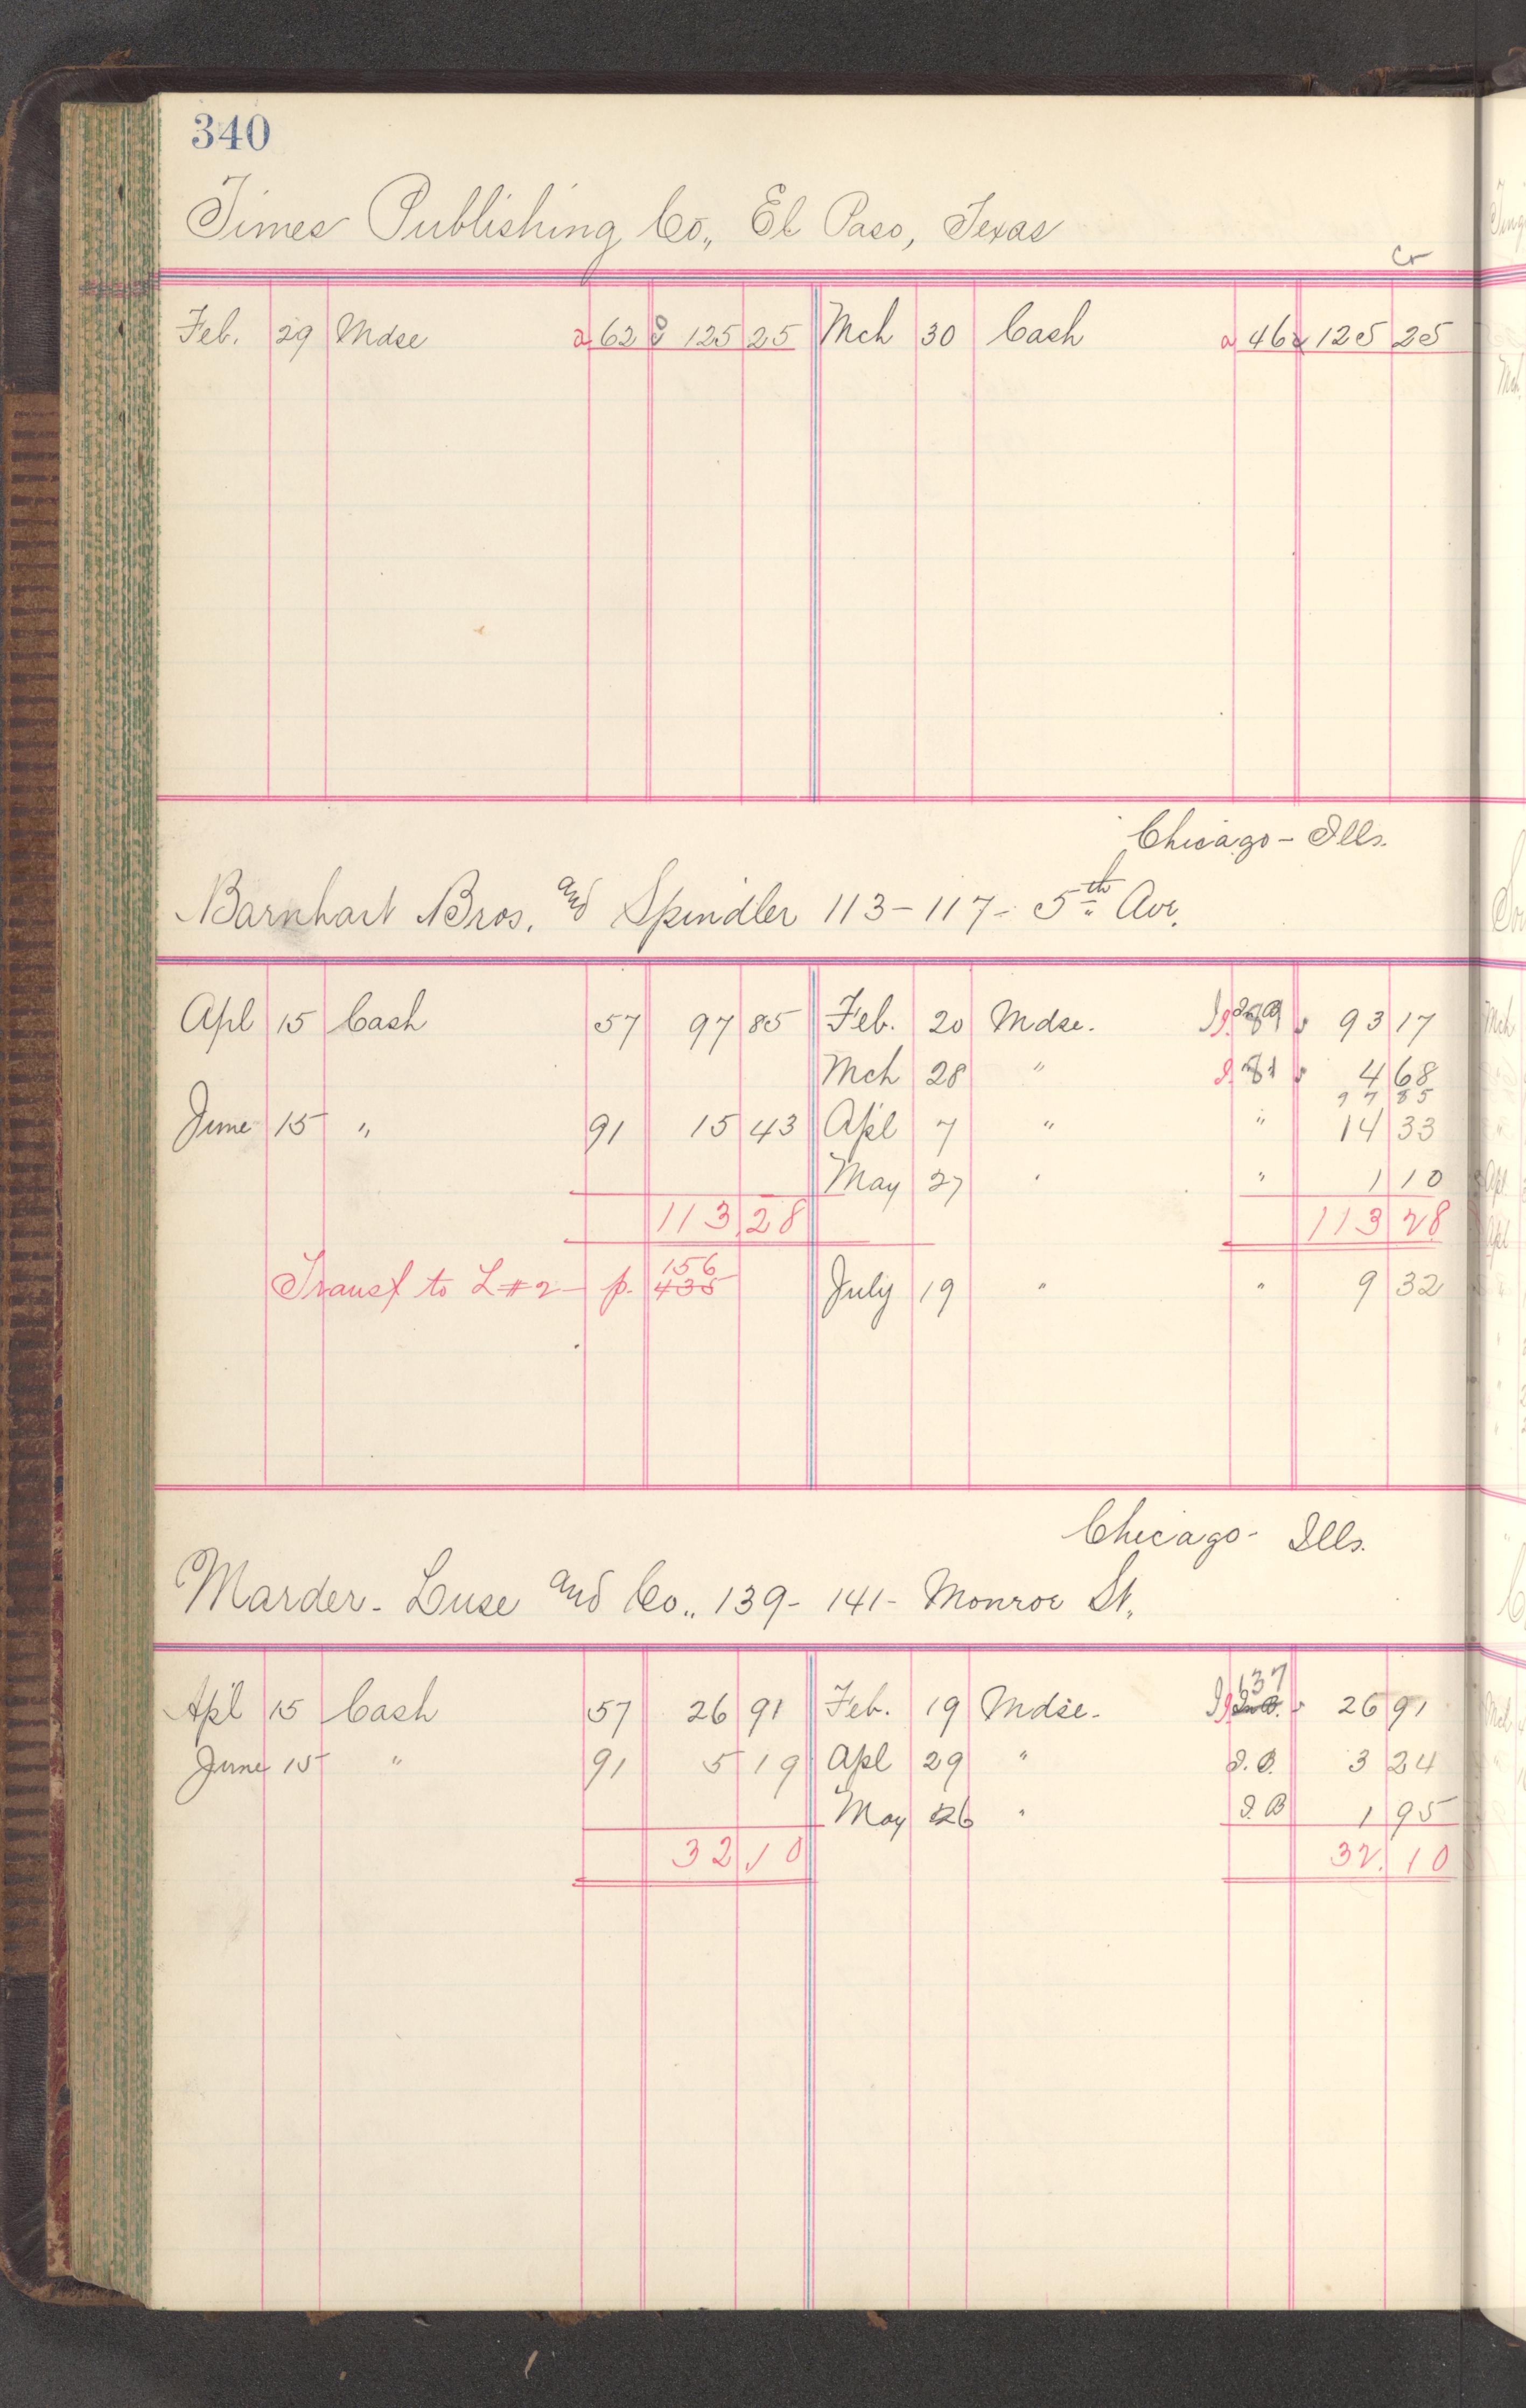 340
Times Publishing Co., El Paso, Texas
Cr
Feb. 29 Mdse a 62 125 25 Mch 30 Cash a 46 125 25
Chicago - Ills.
Barnhart Bros. and Spindler 113-117- 5th Ave.
Apl 15 Cash 57 97 85 Feb. 20 Mdse. 93 17
Mch 28 " 81 4 68
97 85
June 15 " 91 15 43 Apl 7 " " 14 33
May 27 " " 1 10
113 28 113 28
Transf to L#2 - p. 156
435 July 19 " " 9 32
Chicago - Ills.
Marder - Luse and Co., 139-141- Monroe St.
637
Apl 15 Cash 57 26 91 Feb. 19 Mdse. 26 91
June 15 " 91 5 19 Apl 29 " I.B. 3 24
May 26 " I.B 1 95
32 10 32. 10